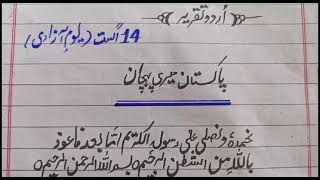 اُردو تقریر
14 اگست (یومِ آزادی)
پاکستان میری پہچان
نحمدہٗ و نصلی علیٰ رسولہ الکریم امّا بعد فاعوذ
باللہ من الشیطٰن الرجیم ہ بسم اللہ الرحمن الرحیم ہ